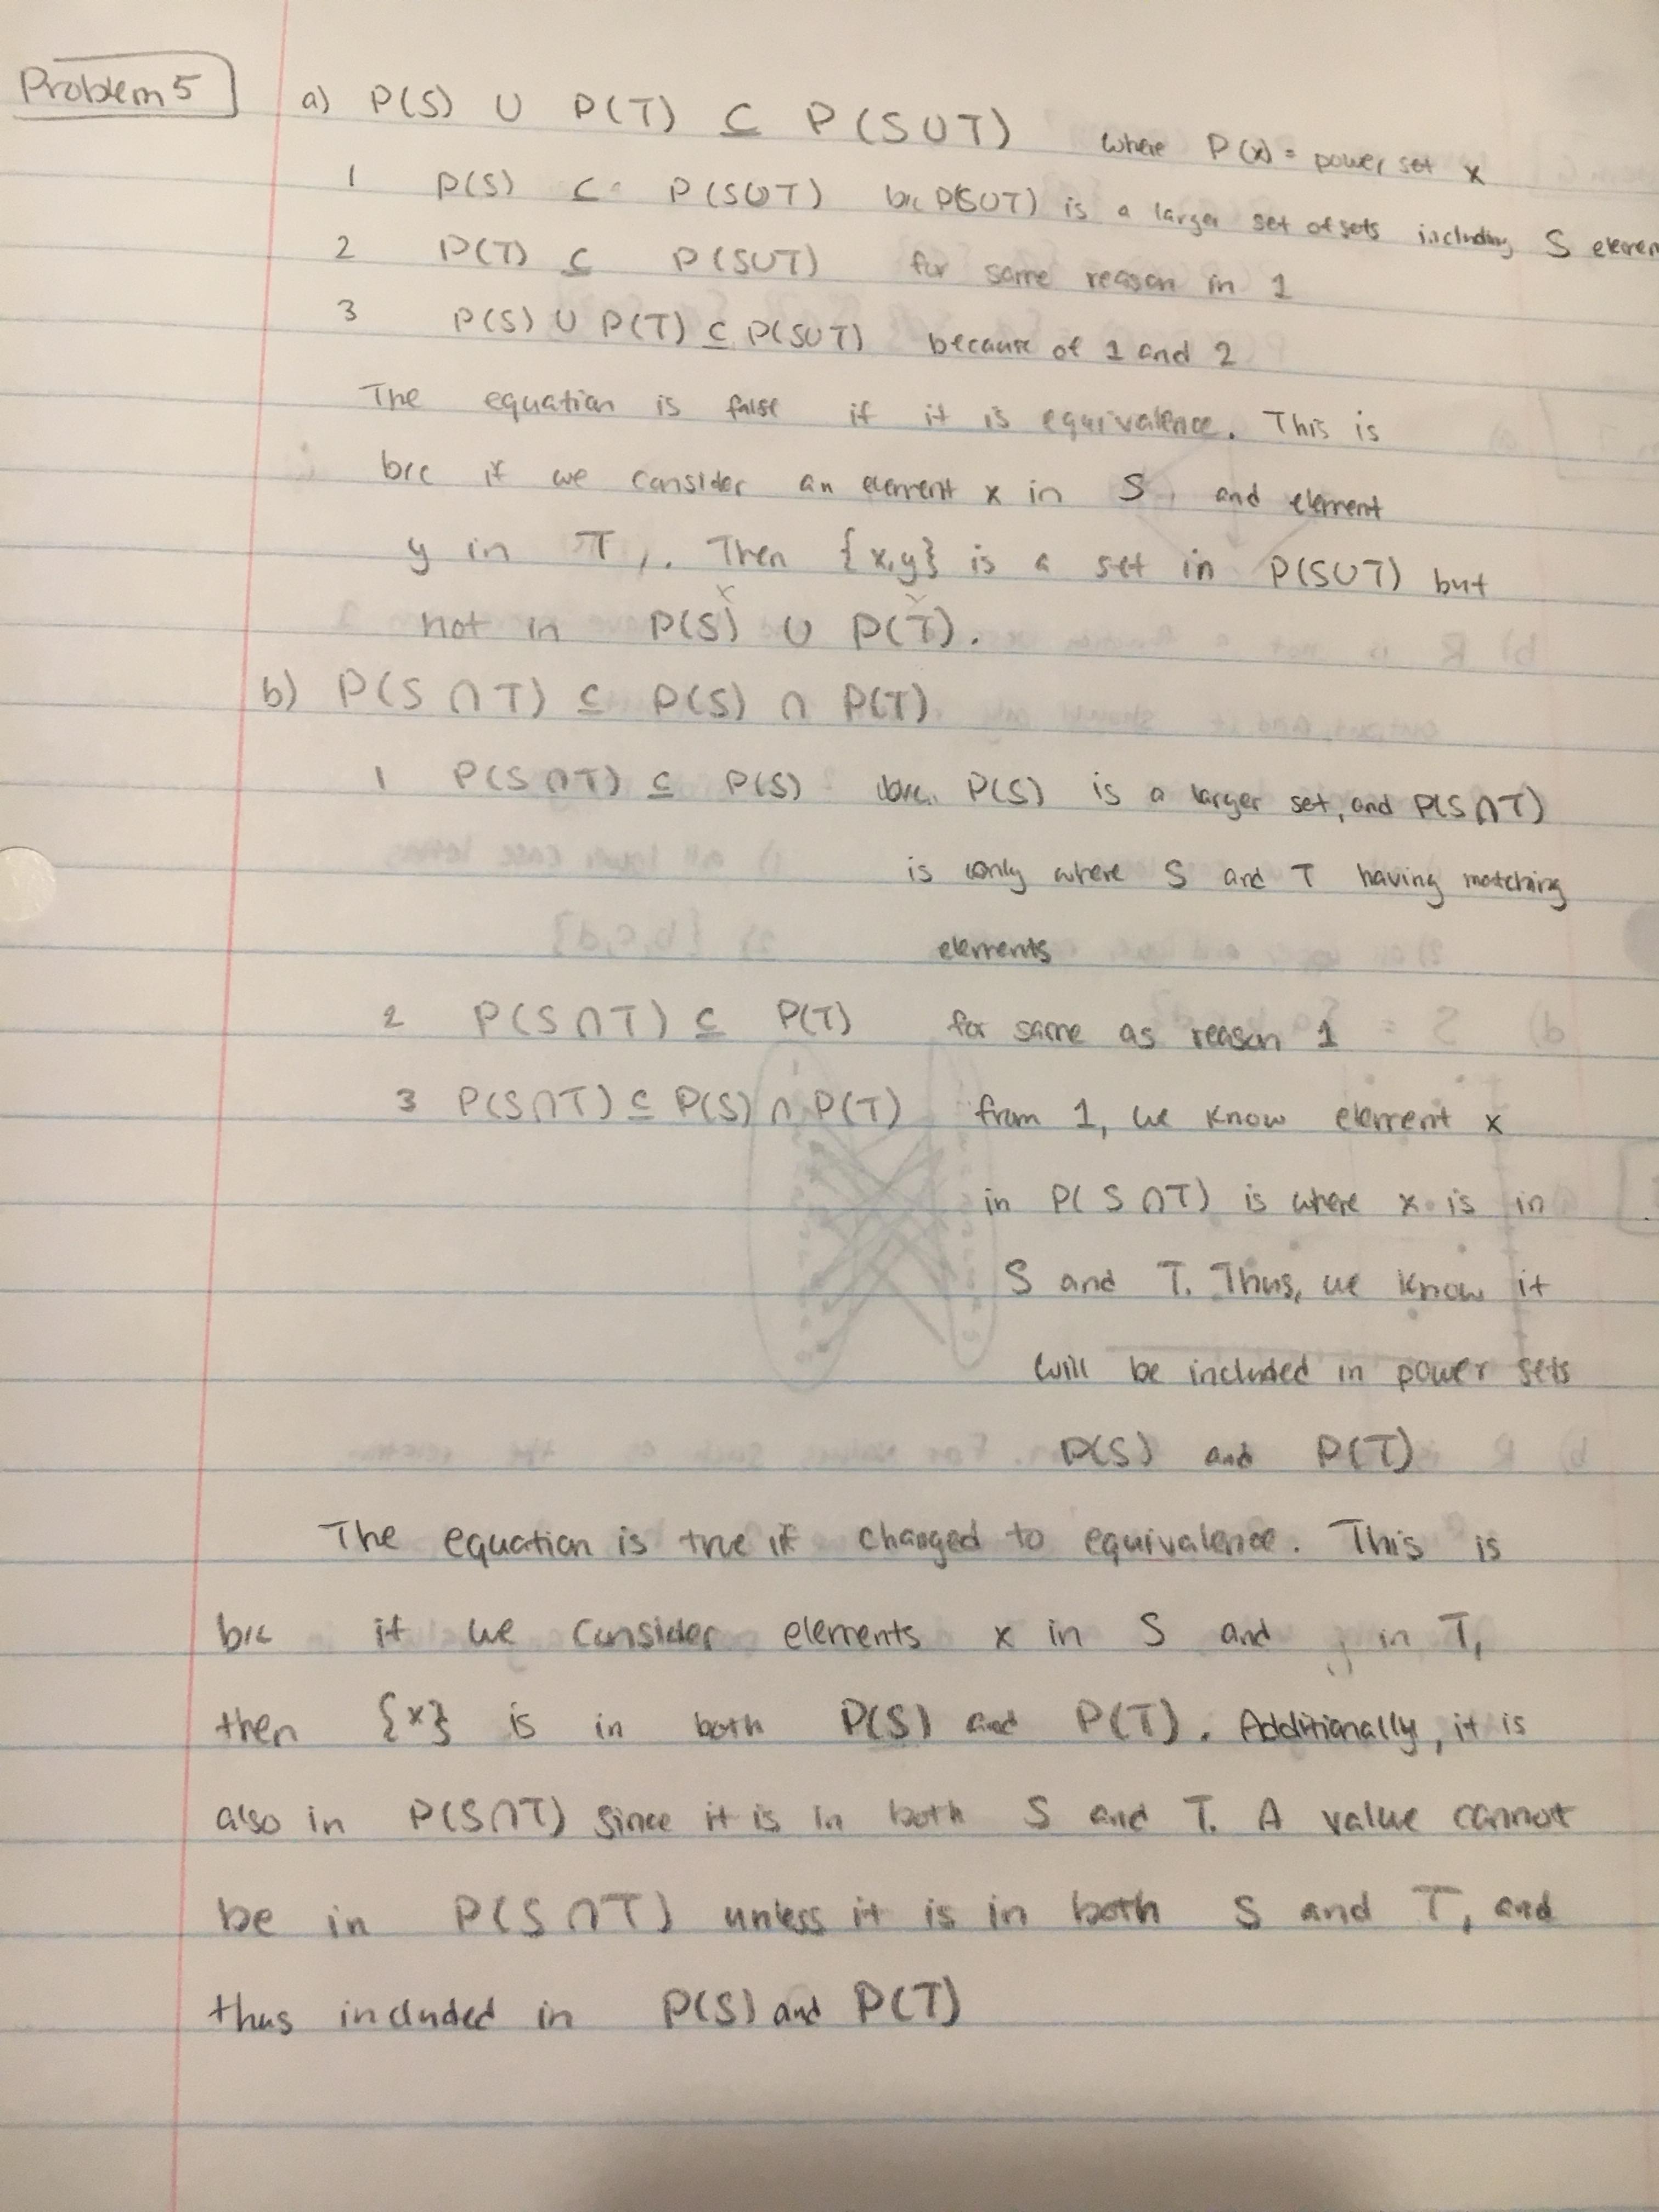 Problem 5
a) P(S) ∪ P(T) ⊆ P(S∪T) where P(x) = power set x
1 P(S) ⊆ P(S∪T) b/c P(S∪T) is a larger set of sets including S elemen
2 P(T) ⊆ P(S∪T) for same reason in 1
3 P(S) ∪ P(T) ⊆ P(S∪T) because of 1 and 2
The equation is false if it is equivalence. This is
b/c if we consider an element x in S, and element
y in T,. Then {x,y} is a set in P(S∪T) but
not in P(S) ∪ P(T).
b) P(S ∩ T) ⊆ P(S) ∩ P(T)
1 P(S ∩ T) ⊆ P(S) b/c. P(S) is a larger set, and P(S ∩ T)
is only where S and T having matching
elements
2 P(S ∩ T) ⊆ P(T) for same as reason 1
3 P(S ∩ T) ⊆ P(S) ∩ P(T) from 1, we know element x
in P(S ∩ T) is where x is in
S and T. Thus, we know it
will be included in power sets
P(S) and P(T)
The equation is true if changed to equivalence. This is
b/c if we consider elements x in S and in T,
then {x} is in both P(S) and P(T). Additionally, it is
also in P(S∩T) since it is in both S and T. A value cannot
be in P(S ∩ T) unless it is in both S and T, and
thus included in P(S) and P(T)